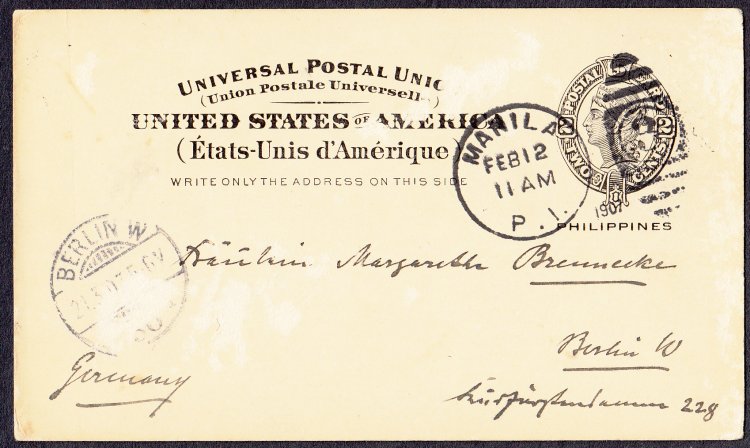 UNIVERSAL POSTAL UNIO
(Union Postale Universelle)
UNITED STATES OF AMERICA
(États-Unis d'Amérique)
WRITE ONLY THE ADDRESS ON THIS SIDE
POSTAL CARDS
2 TWO CENTS 2
1907
PHILIPPINES
MANILA
FEB 12
11 AM
P. I.
BERLIN W
21.3.07.5-6V
50
Fräulein Margarethe Brennecke
Berlin W
Kurfürstendamm 228
Germany